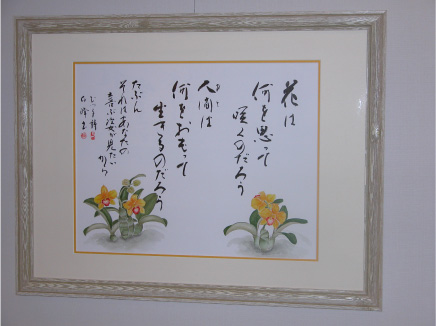 花は
何を思って
咲くのだろう
人間は
何をおもって
生きるのだろう
たぶん
それはあなたの
喜ぶ姿が見たい
から